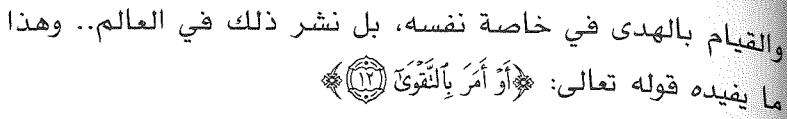 والقيام بالهدى في خاصة نفسه، بل نشر ذلك في العالم.. وهذا
ما يفيده قوله تعالى: ﴿أَوْ أَمَرَ بِالتَّقْوَىٰٓ ١٢﴾